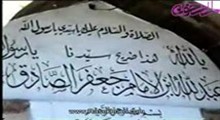 الصلاة والسلام عليك ياسيدي يارسول الله
ياالله
هذا ضريح سيدنا
يارسول
عبدالله ابن الامام جعفر الصادق